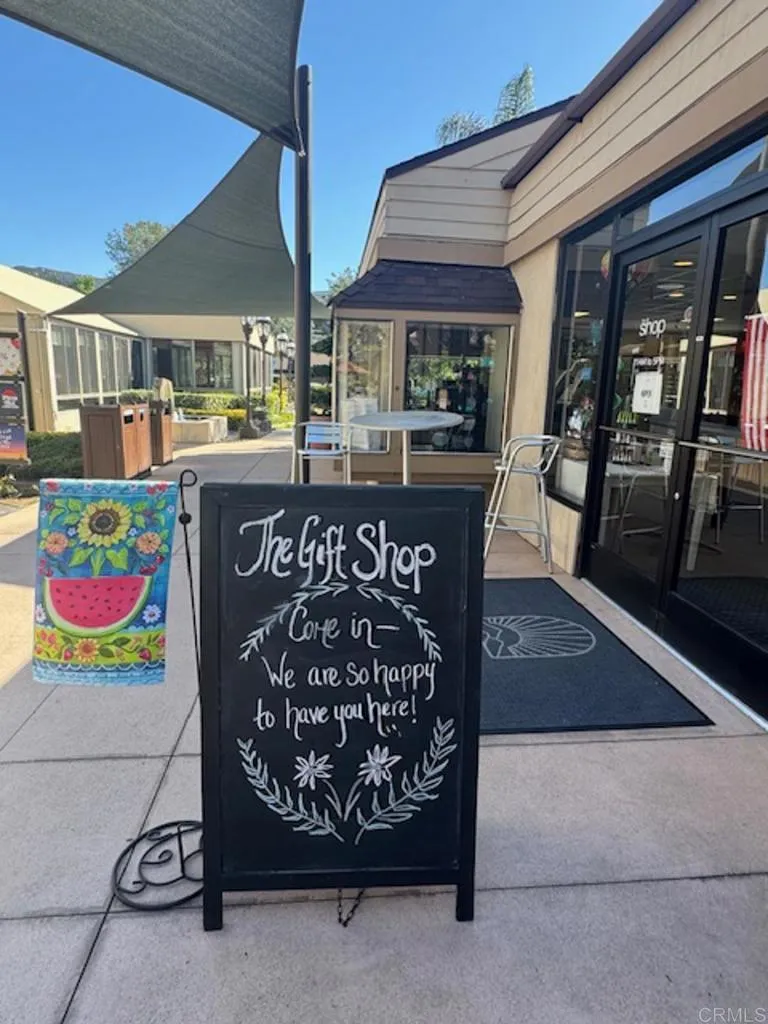 shop
The Gift Shop
Come in—
We are so happy
to have you here!
CRMLS